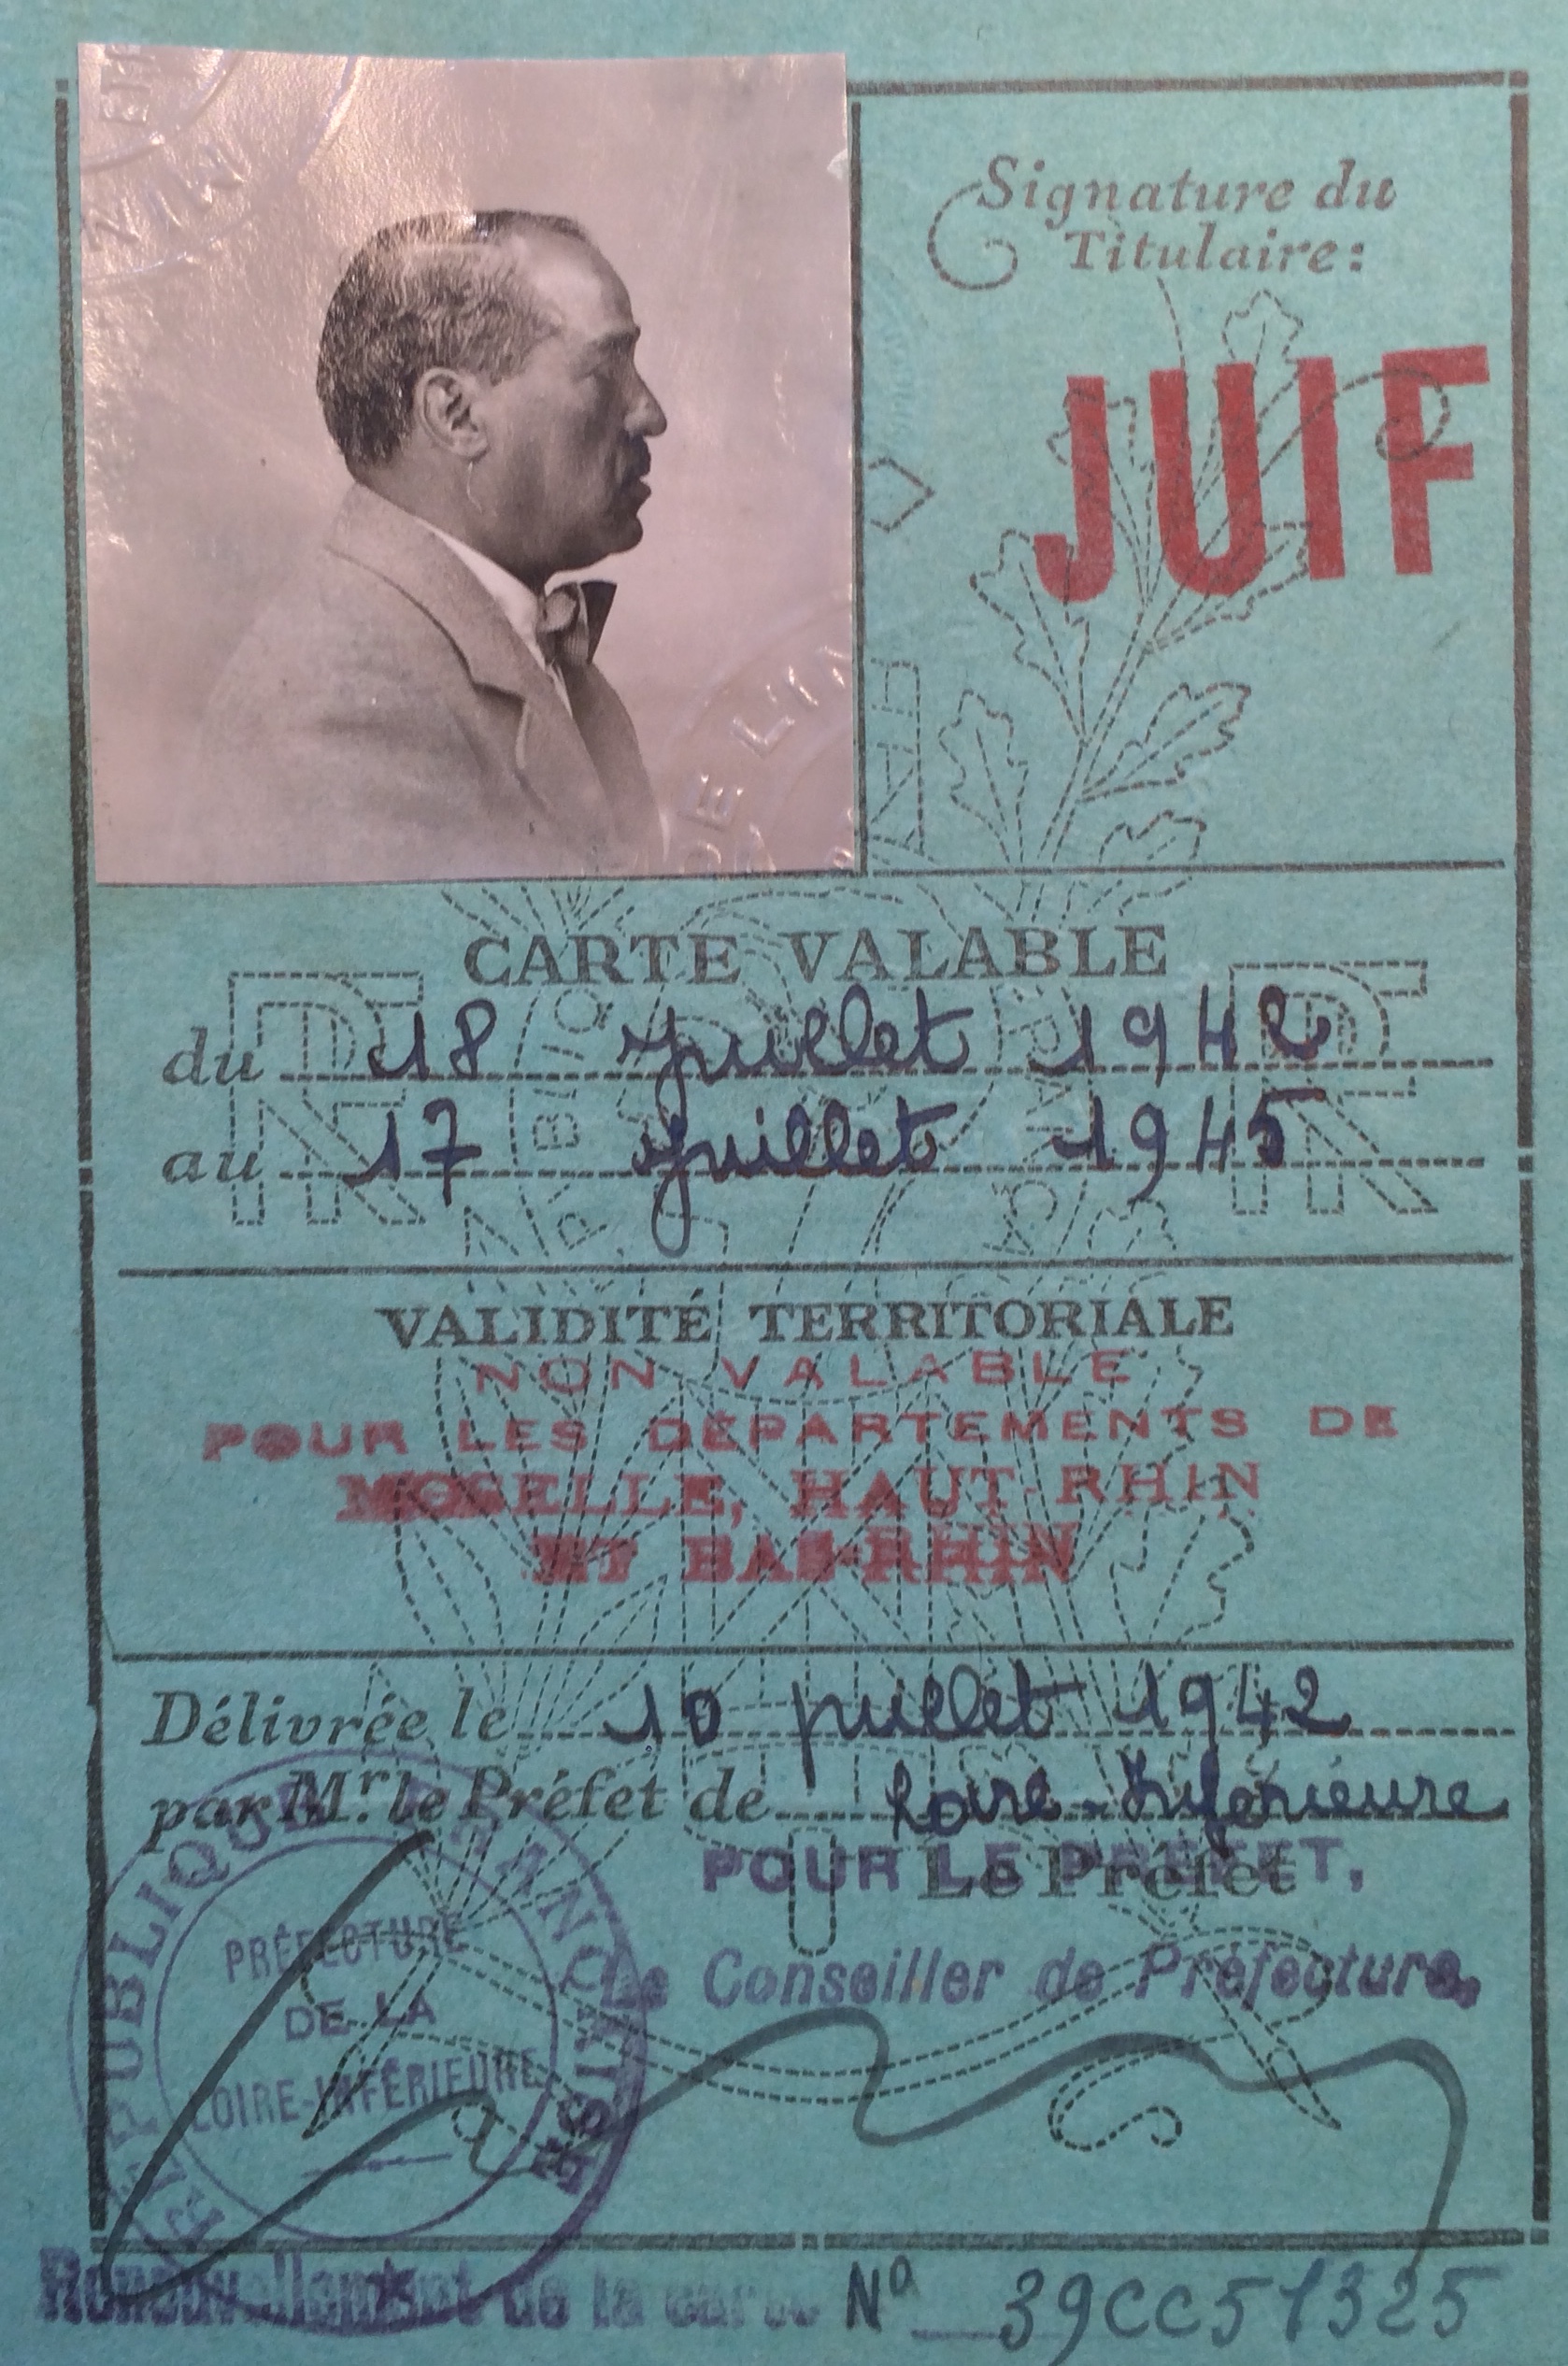 Signature du
Titulaire:
JUIF
CARTE VALABLE
du 18 Juillet 1942
au 17 Juillet 1945
VALIDITÉ TERRITORIALE
NON VALABLE
POUR LES DÉPARTEMENTS DE
MOSELLE, HAUT-RHIN
ET BAS-RHIN
Délivrée le 10 juillet 1942
par Mr. le Préfet de Loire-Inférieure
POUR LE PRÉFET,
Le Préfet
Le Conseiller de Préfecture,
RÉPUBLIQUE FRANÇAISE
PRÉFECTURE
DE LA
LOIRE-INFÉRIEURE
Renouvellement de la carte No 39CC51325